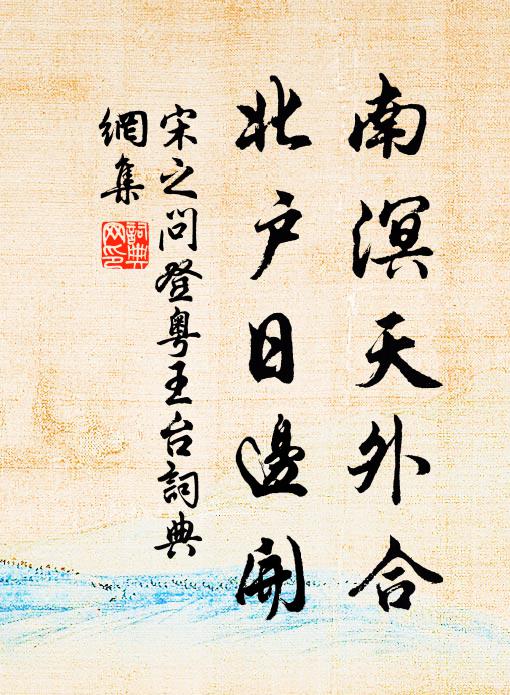 南溟天外合
北户日邊開
宋之问登粤王台詞典
網集
詞典
网印